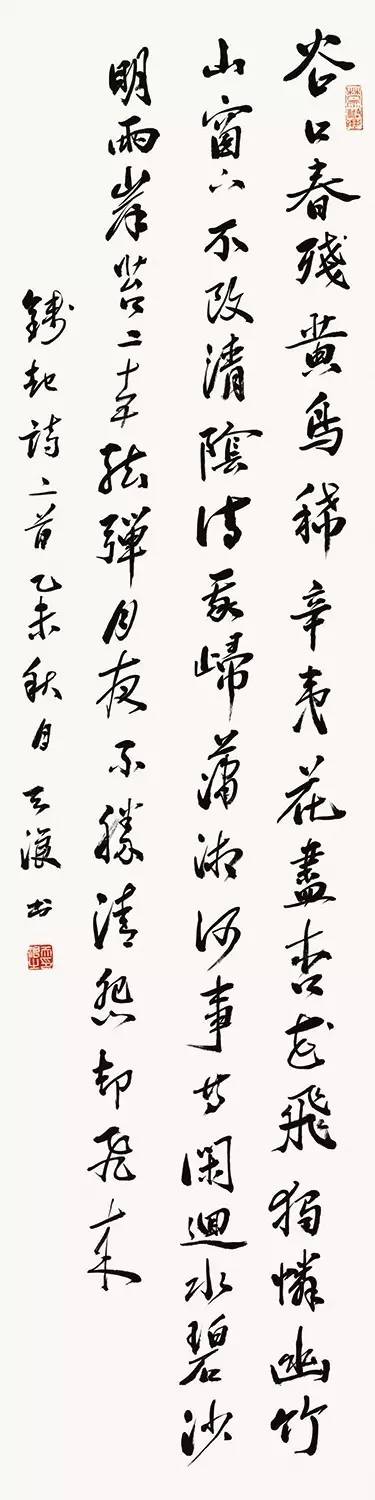 谷口春殘黃鳥稀辛夷花盡杏花飛獨憐幽竹
山窗下不改清陰待我歸瀟湘何事等閑迴水碧沙
明兩岸苔二十五絃彈月夜不勝清怨卻飛來
錢起詩二首乙未秋月天書